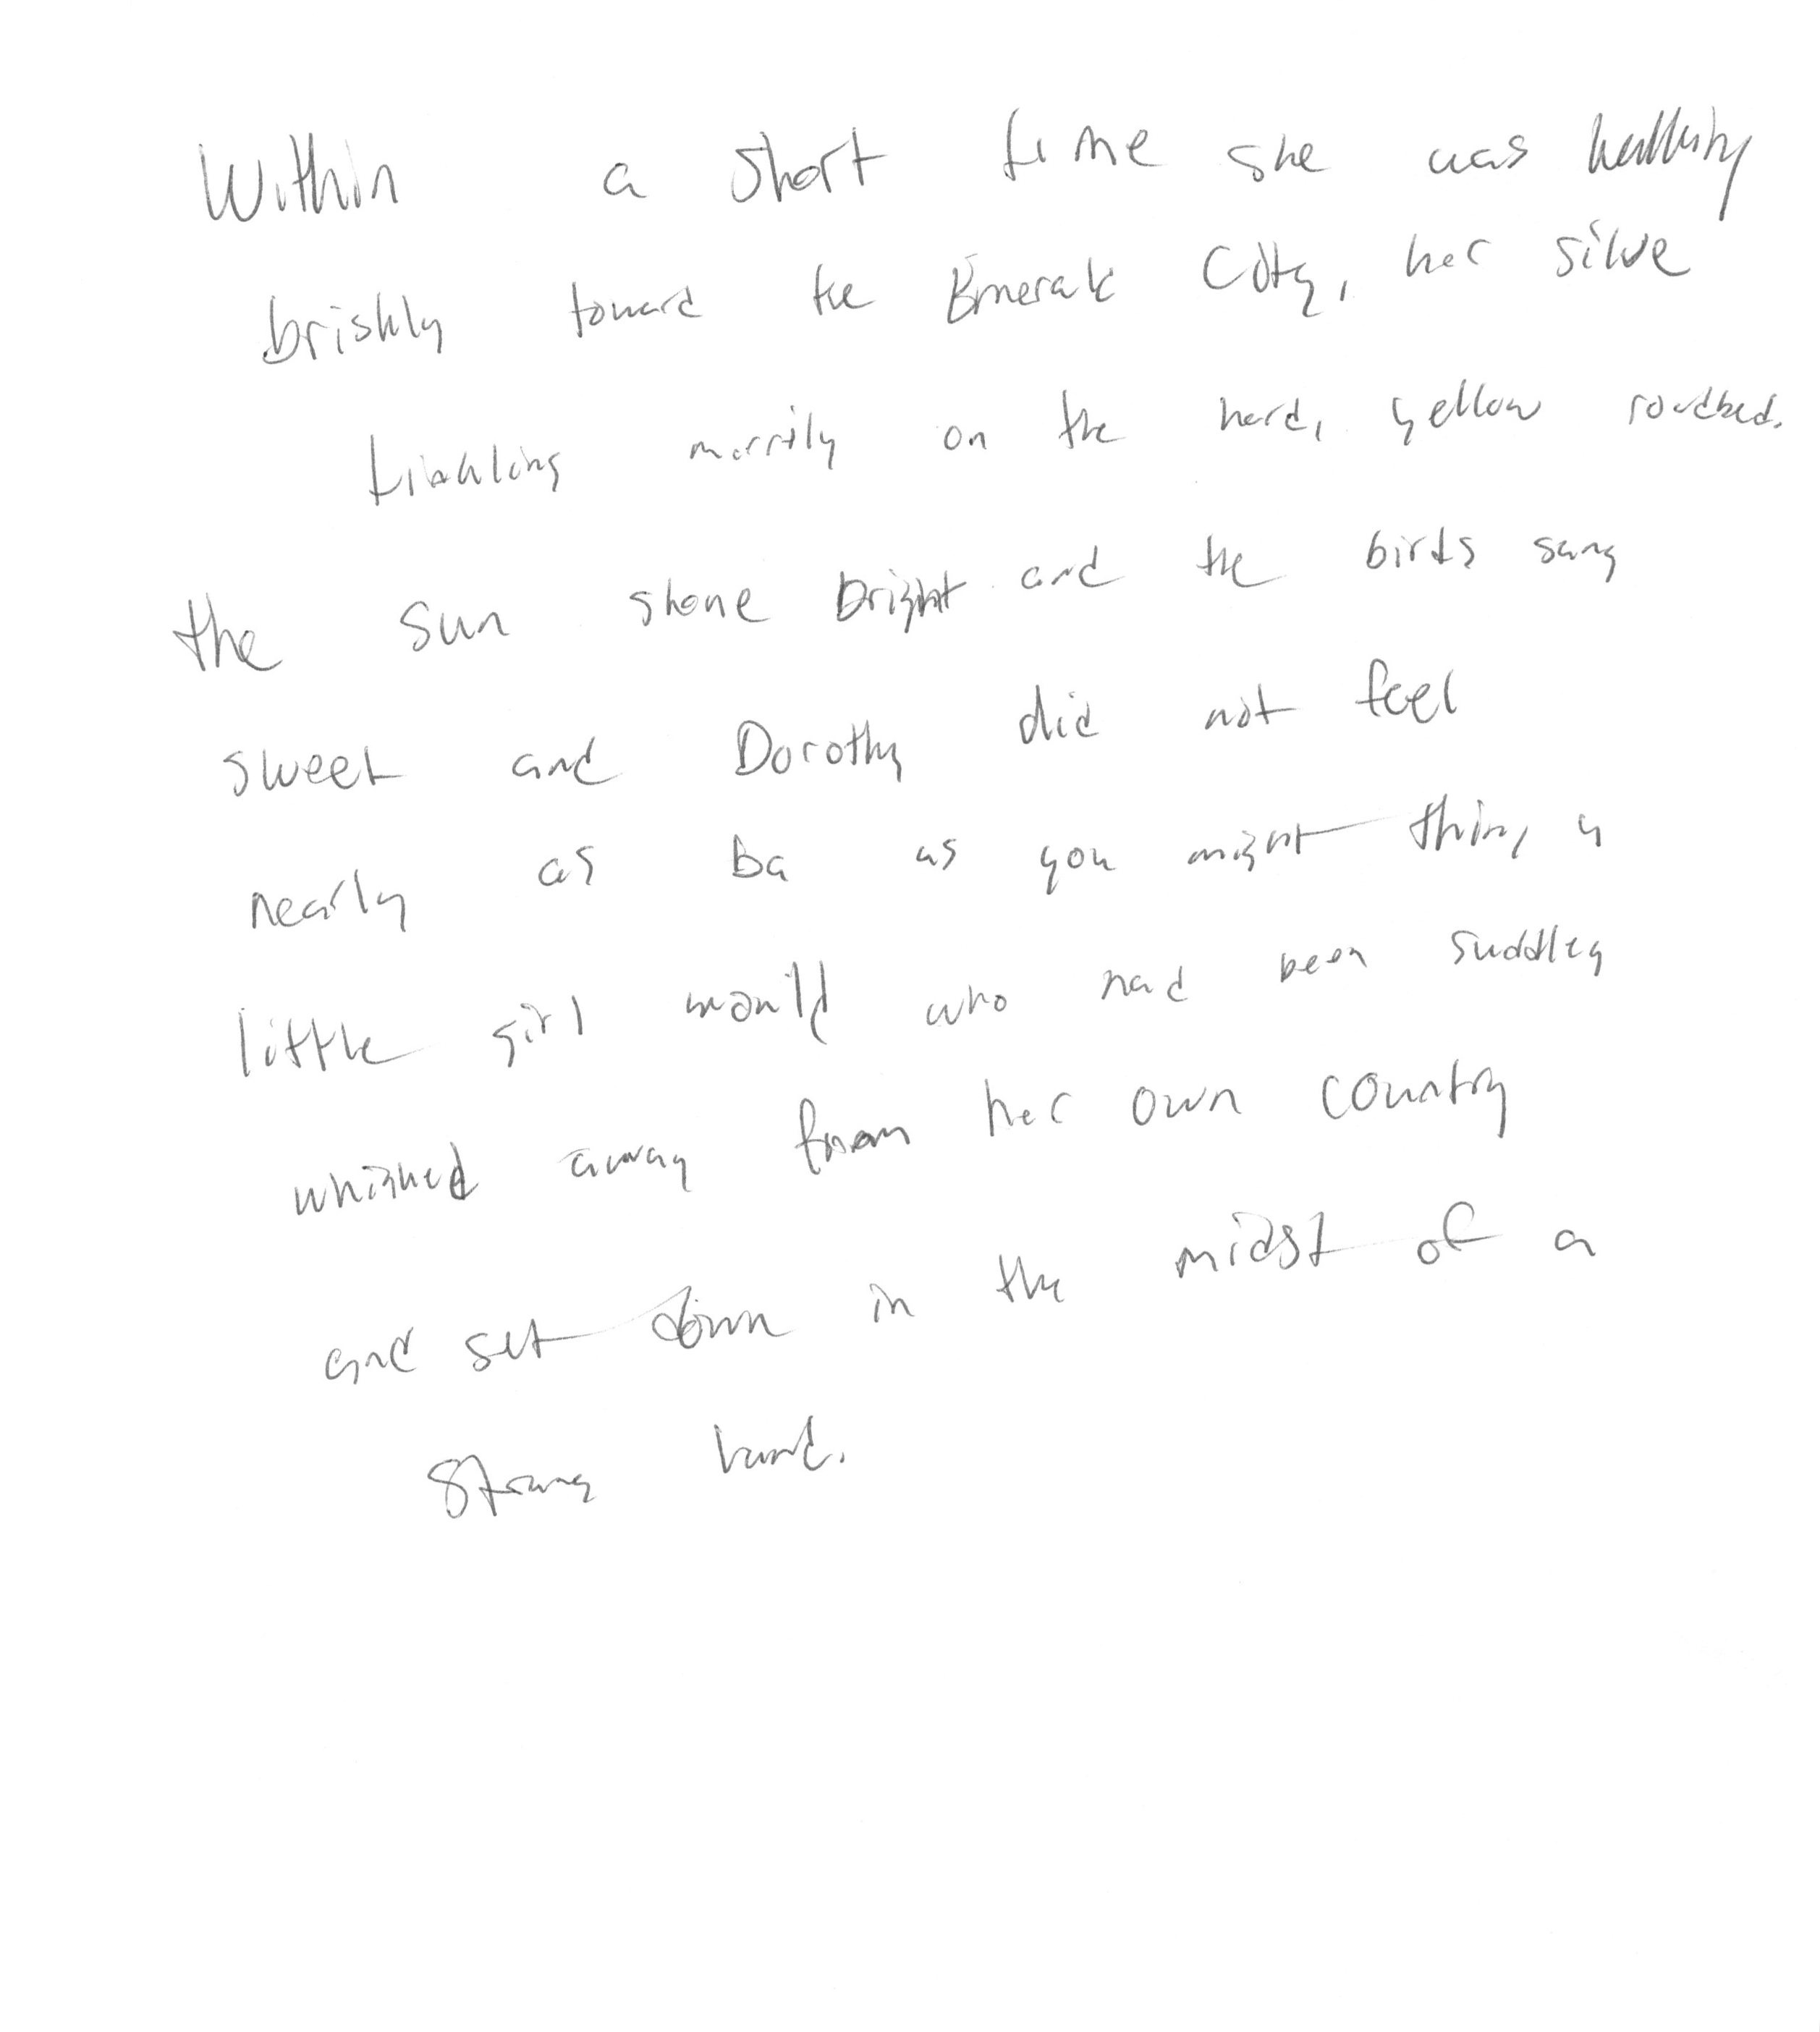 Within a short time she was walking
briskly toward the Emerald City, her silve
tinkling merrily on the hard, yellow roadbed.
the sun shone bright and the birds sang
sweet and Dorothy did not feel
nearly as ba as you might thing a
little girl would who had been suddley
whisked away from her own country
and set down in the midst of a
strang land.